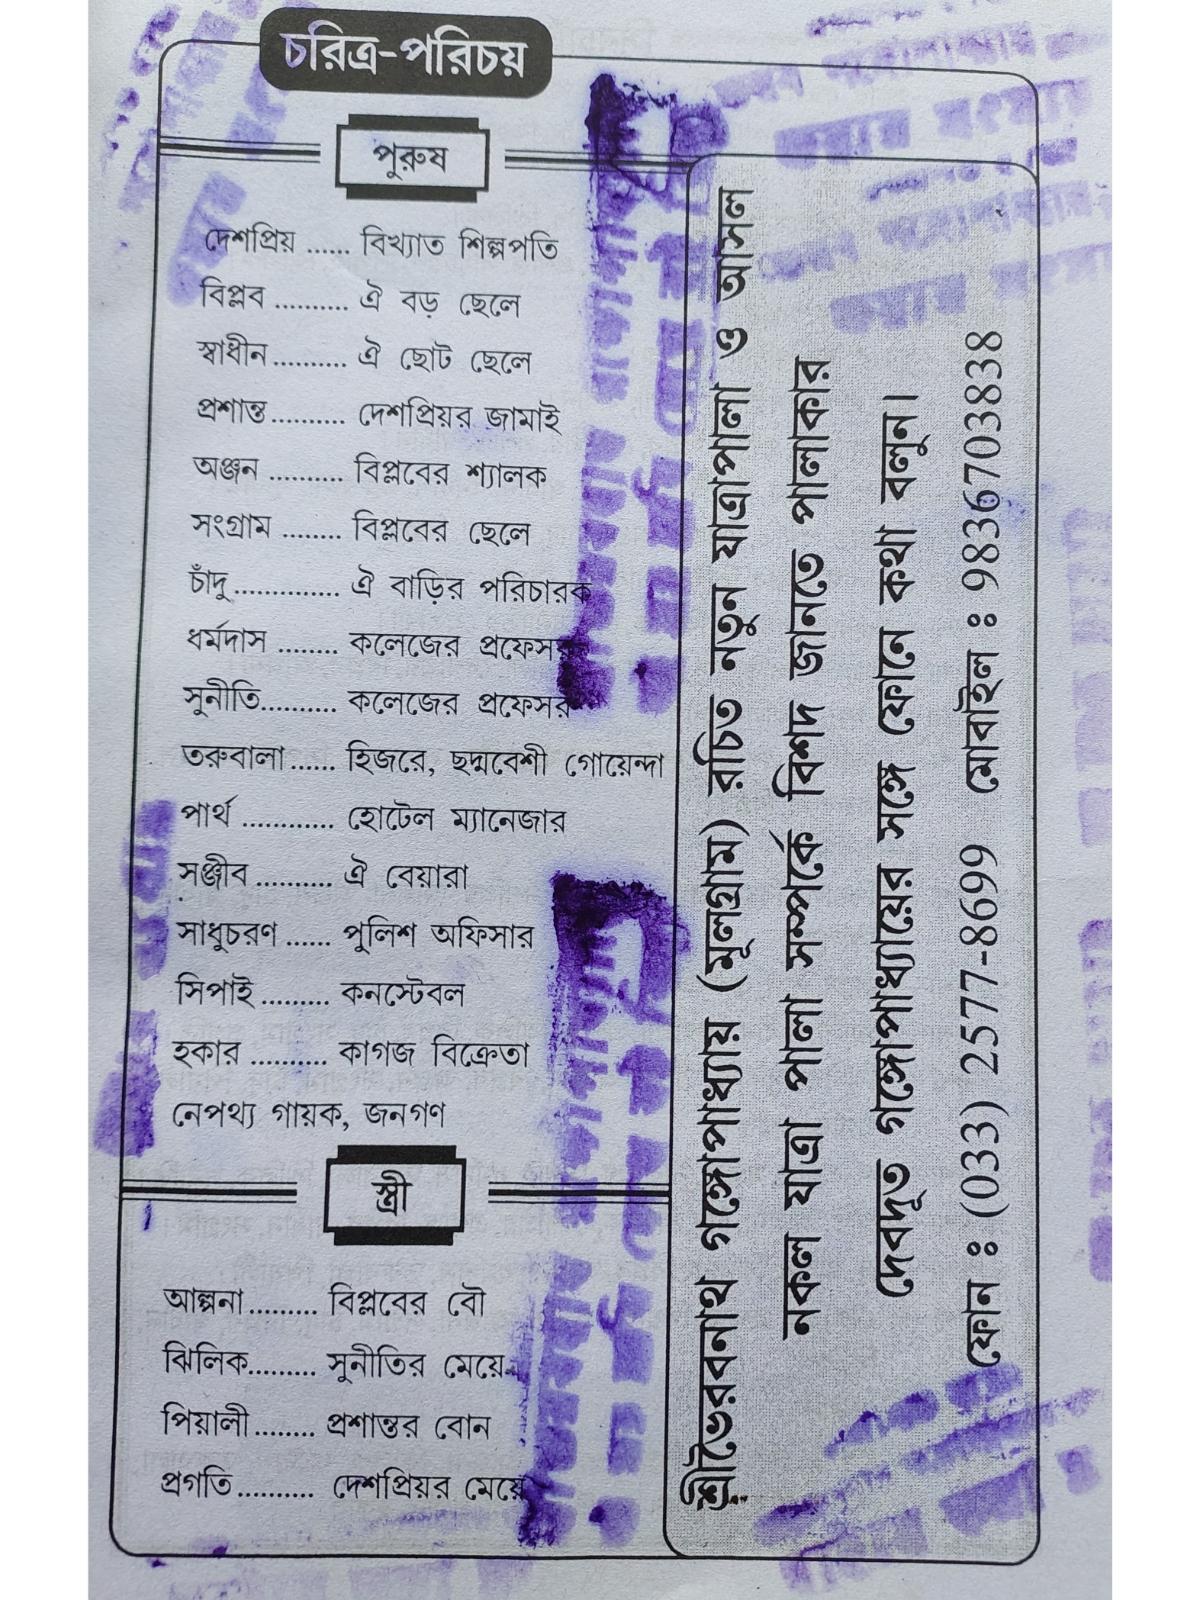 চরিত্র-পরিচয়
পুরুষ
দেশপ্রিয় ...... বিখ্যাত শিল্পপতি
বিপ্লব .......... ঐ বড় ছেলে
স্বাধীন .......... ঐ ছোট ছেলে
প্রশান্ত .......... দেশপ্রিয়র জামাই
অঞ্জন .......... বিপ্লবের শ্যালক
সংগ্রাম ........ বিপ্লবের ছেলে
চাঁদু .............. ঐ বাড়ির পরিচারক
ধর্মদাস ........ কলেজের প্রফেসর
সুনীতি.......... কলেজের প্রফেসর
তরুবালা ...... হিজরে, ছদ্মবেশী গোয়েন্দা
পার্থ ............ হোটেল ম্যানেজার
সঞ্জীব .......... ঐ বেয়ারা
সাধুচরণ ...... পুলিশ অফিসার
সিপাই ......... কনস্টেবল
হকার .......... কাগজ বিক্রেতা
নেপথ্য গায়ক, জনগণ
স্ত্রী
আল্পনা......... বিপ্লবের বৌ
ঝিলিক......... সুনীতির মেয়ে
পিয়ালী ........ প্রশান্তর বোন
প্রগতি .......... দেশপ্রিয়র মেয়ে
শ্রীভৈরবনাথ গঙ্গোপাধ্যায় (মূলগ্রাম) রচিত নতুন যাত্রাপালা ও আসল
নকল যাত্রা পালা সম্পর্কে বিশদ জানতে পালাকার
দেবদূত গঙ্গোপাধ্যায়ের সঙ্গে ফোনে কথা বলুন।
ফোন : (033) 2577-8699 মোবাইল : 9836703838